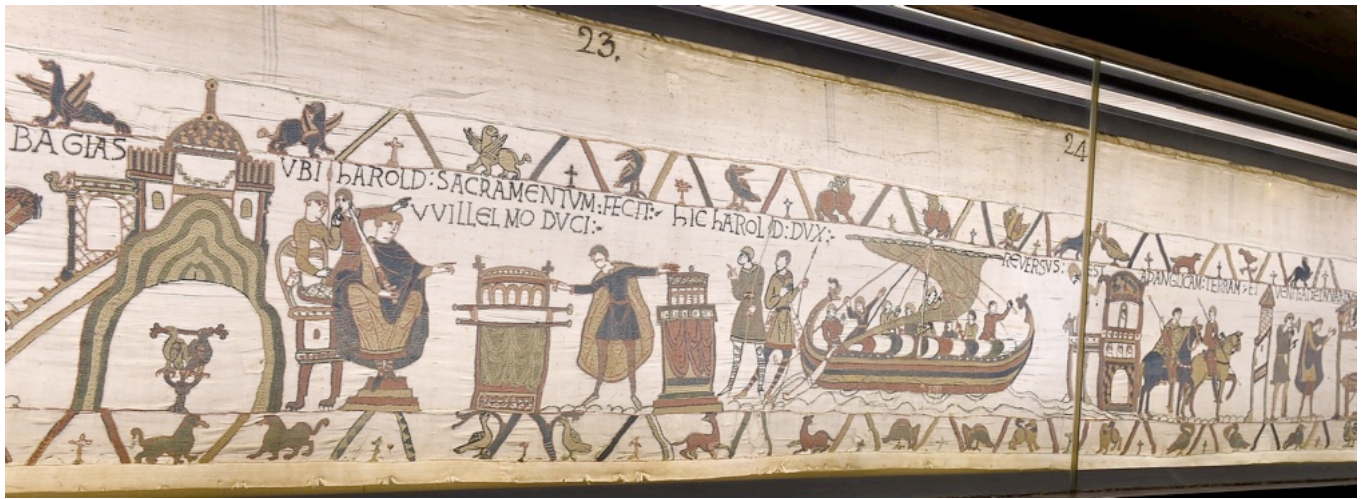 23.
24
BAGIAS
VBI hAROLD:SACRAMENTUM:FECIT:
VVILLELMO DUCI:
hIC hAROLD:DUX:
REVERSUS: EST ADANGLICAM:TERRAM: ET